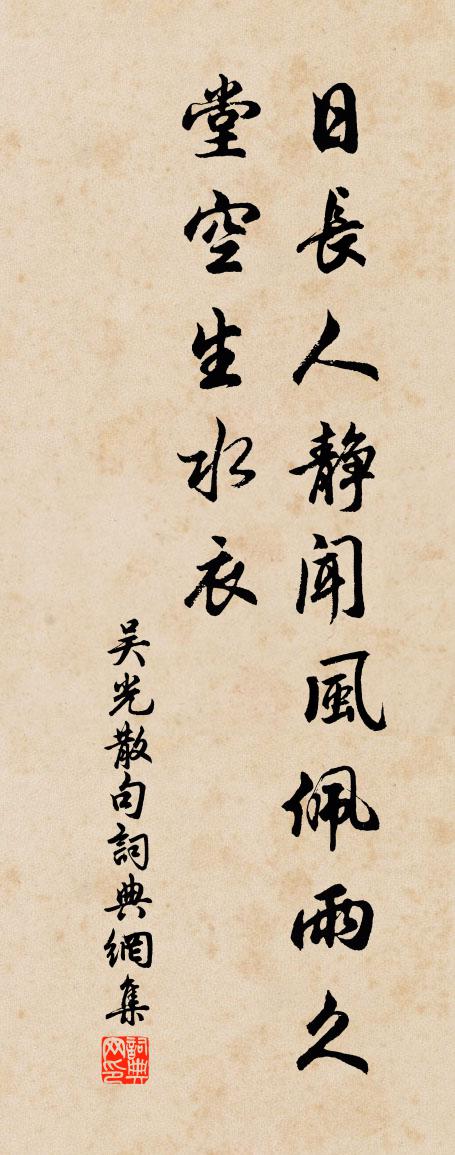 日長人靜聞風佩雨久
堂空生水衣
吴光散句詞典網集
詞典网印